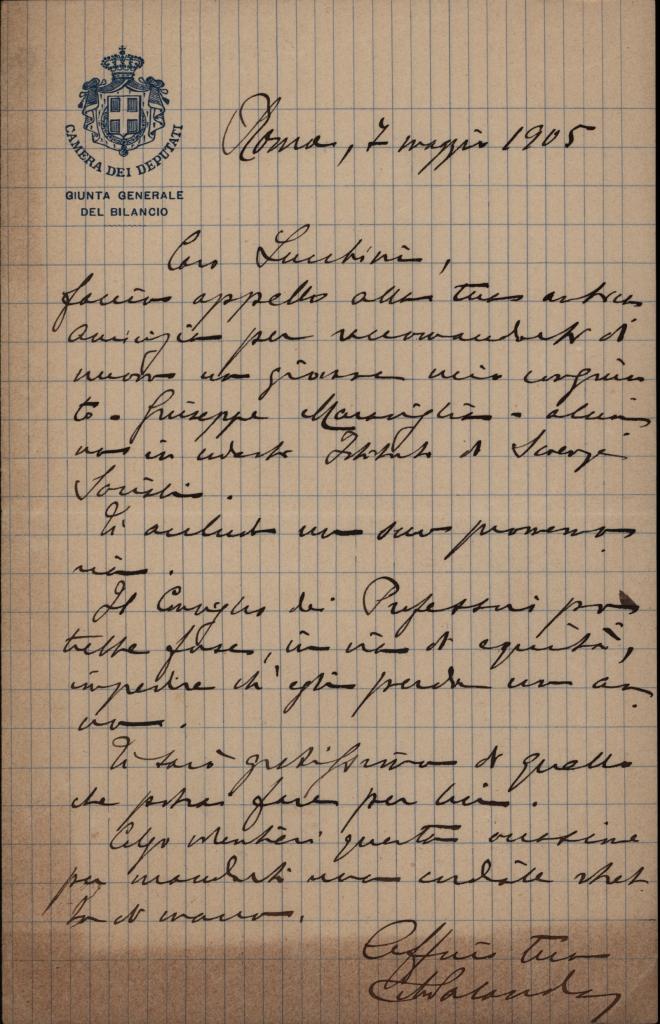 CAMERA DEI DEPUTATI
GIUNTA GENERALE
DEL BILANCIO
Roma, 7 maggio 1905
Caro Lucchini,
faccio appello alla tua antica
amicizia per raccomandarti di
nuovo un giovane mio congiun
to - Giuseppe Maraviglia - alun
no in codesto Istituto di Scienze
Sociali.
Ti accludo un suo promemo
ria.
Il Consiglio dei Professori po
trebbe forse, in via di equità,
impedire ch'egli perda un an
no.
Ti sarò gratissimo di quello
che potrai fare per lui.
Colgo volentieri questa occasione
per mandarti una cordiale stret
ta di mano.
Aff.mo tuo
A. Salandra